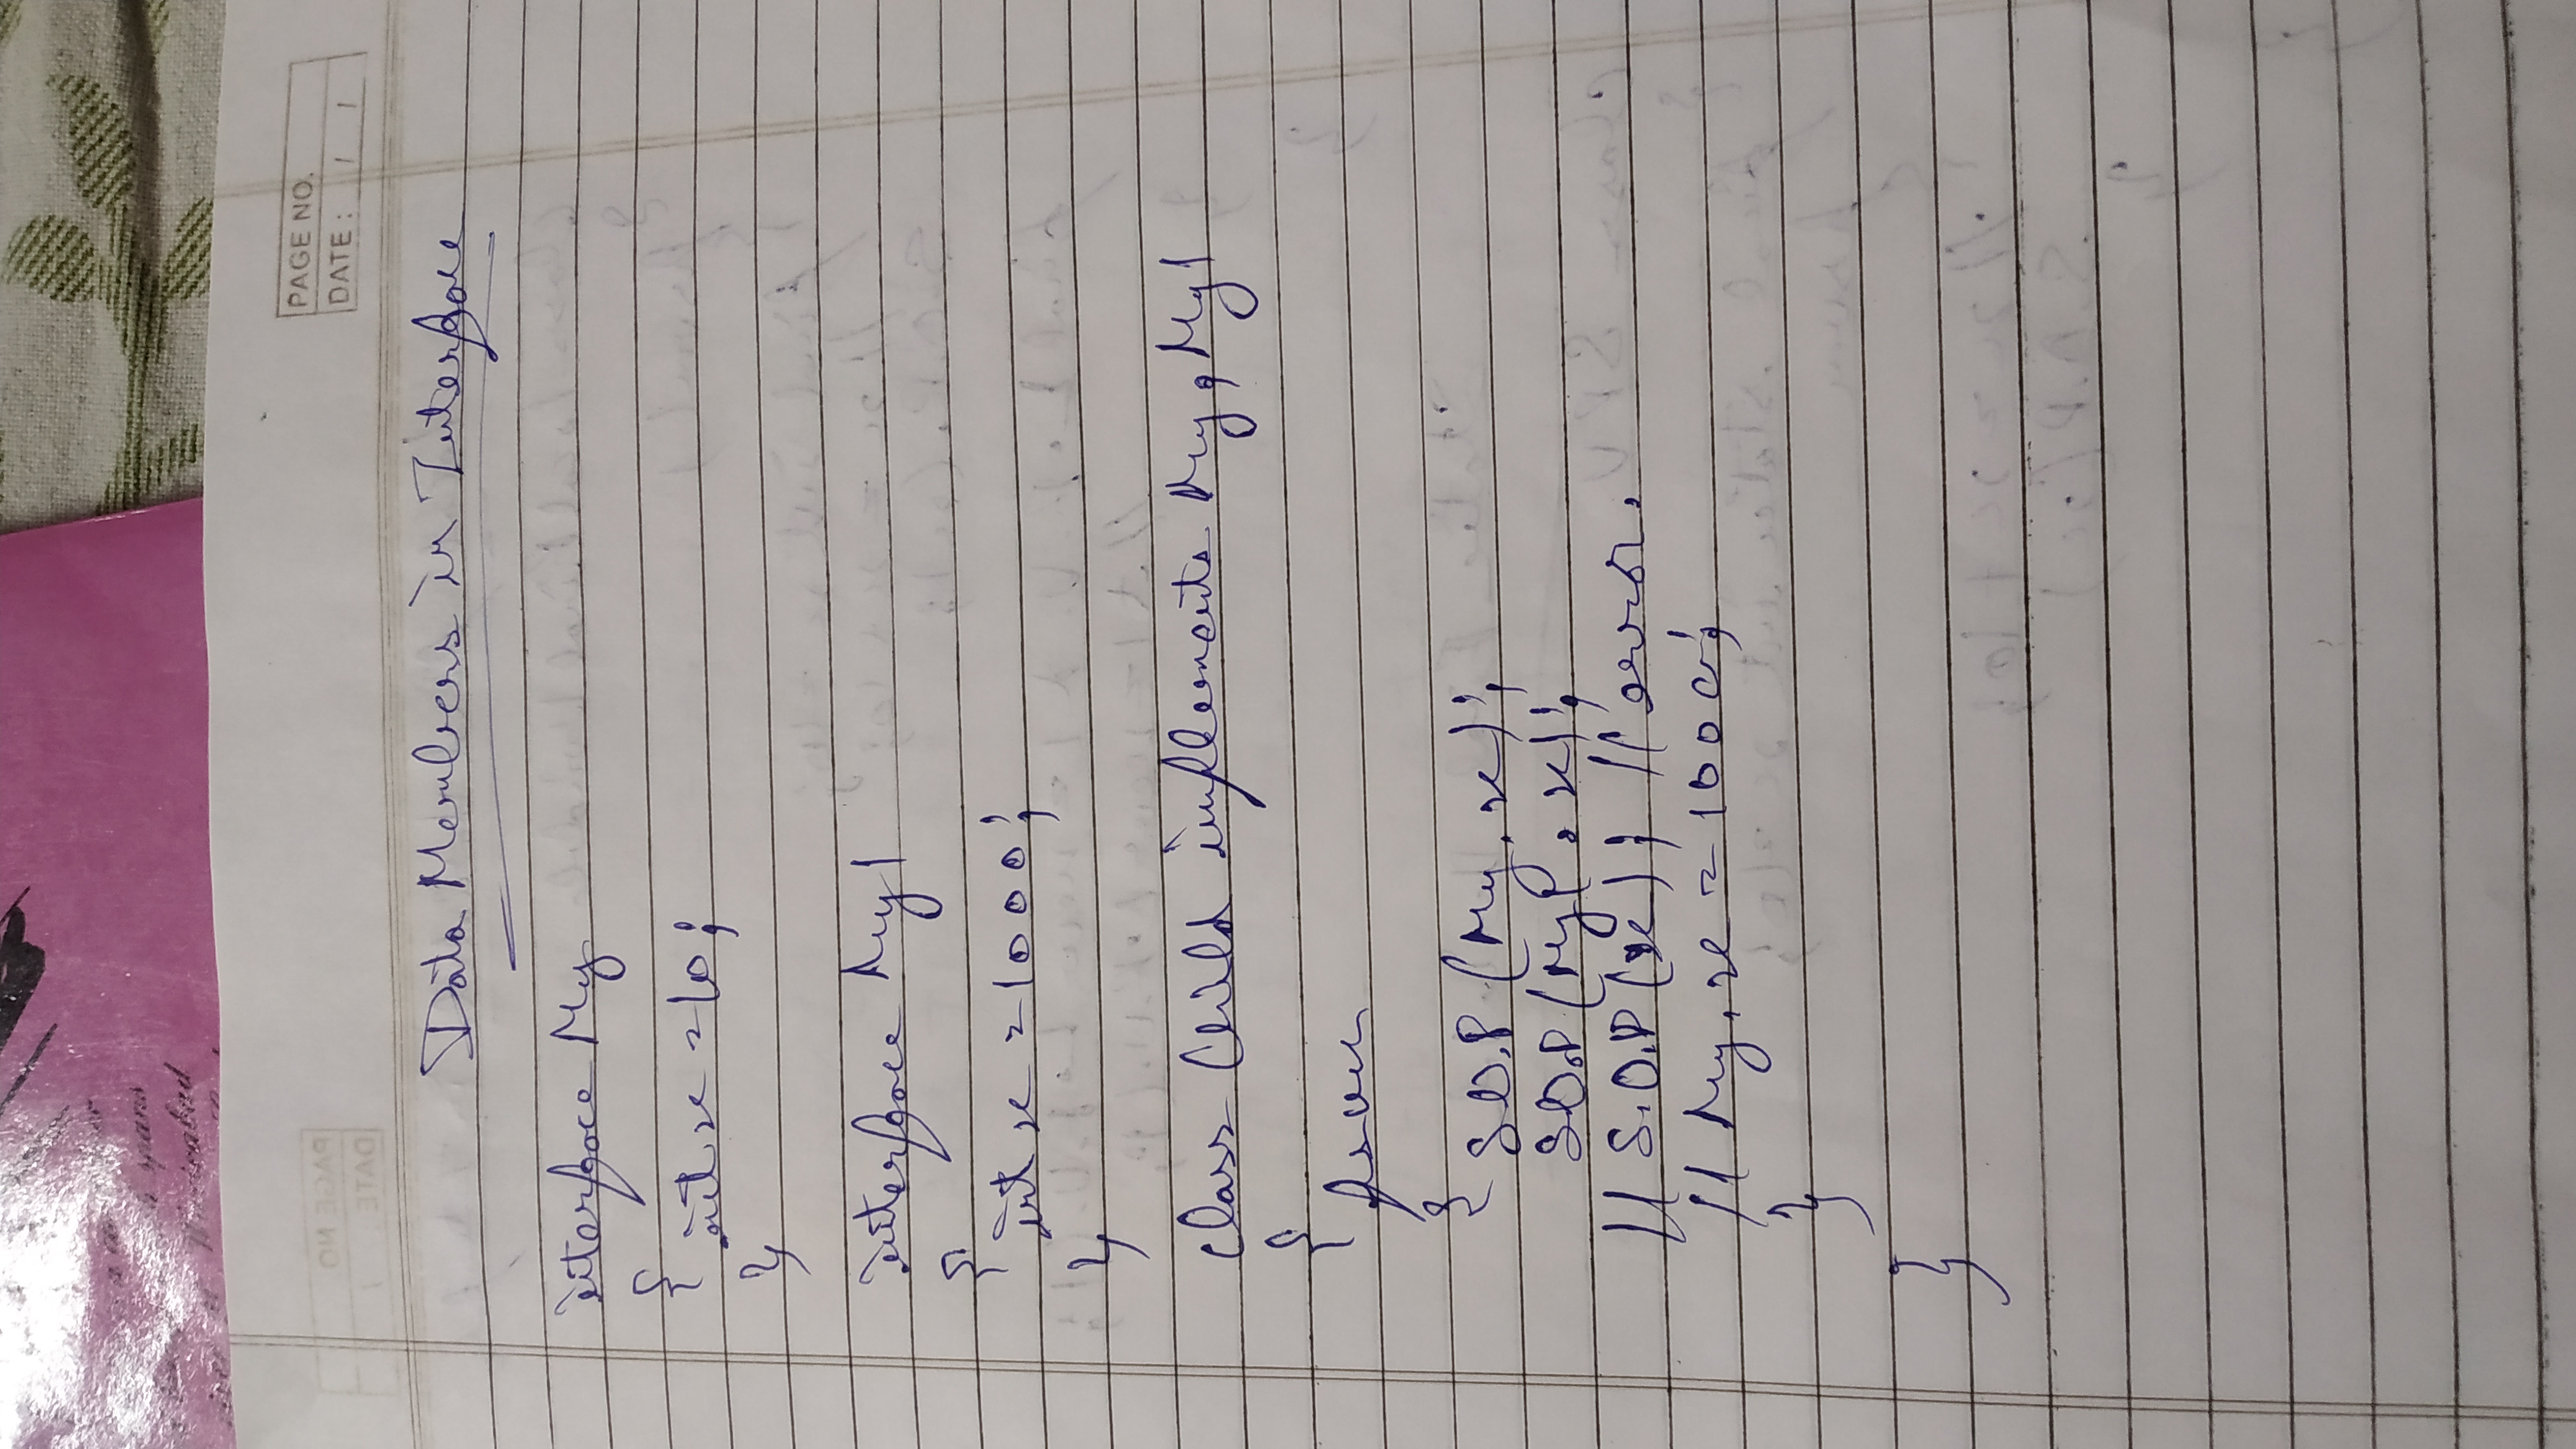 spans
Wazirabad
PAGE NO.
DATE : / /
PAGE NO.
DATE /
Data Members in Interface
interface My
{
int x = 10;
}
interface My1
{
int x = 1000;
}
class Child implements My, My1
{
psvm
{ S.O.P (My.x);
S.O.P (My1.x);
// S.O.P (x); // error.
// My.x = 1000;
}
}